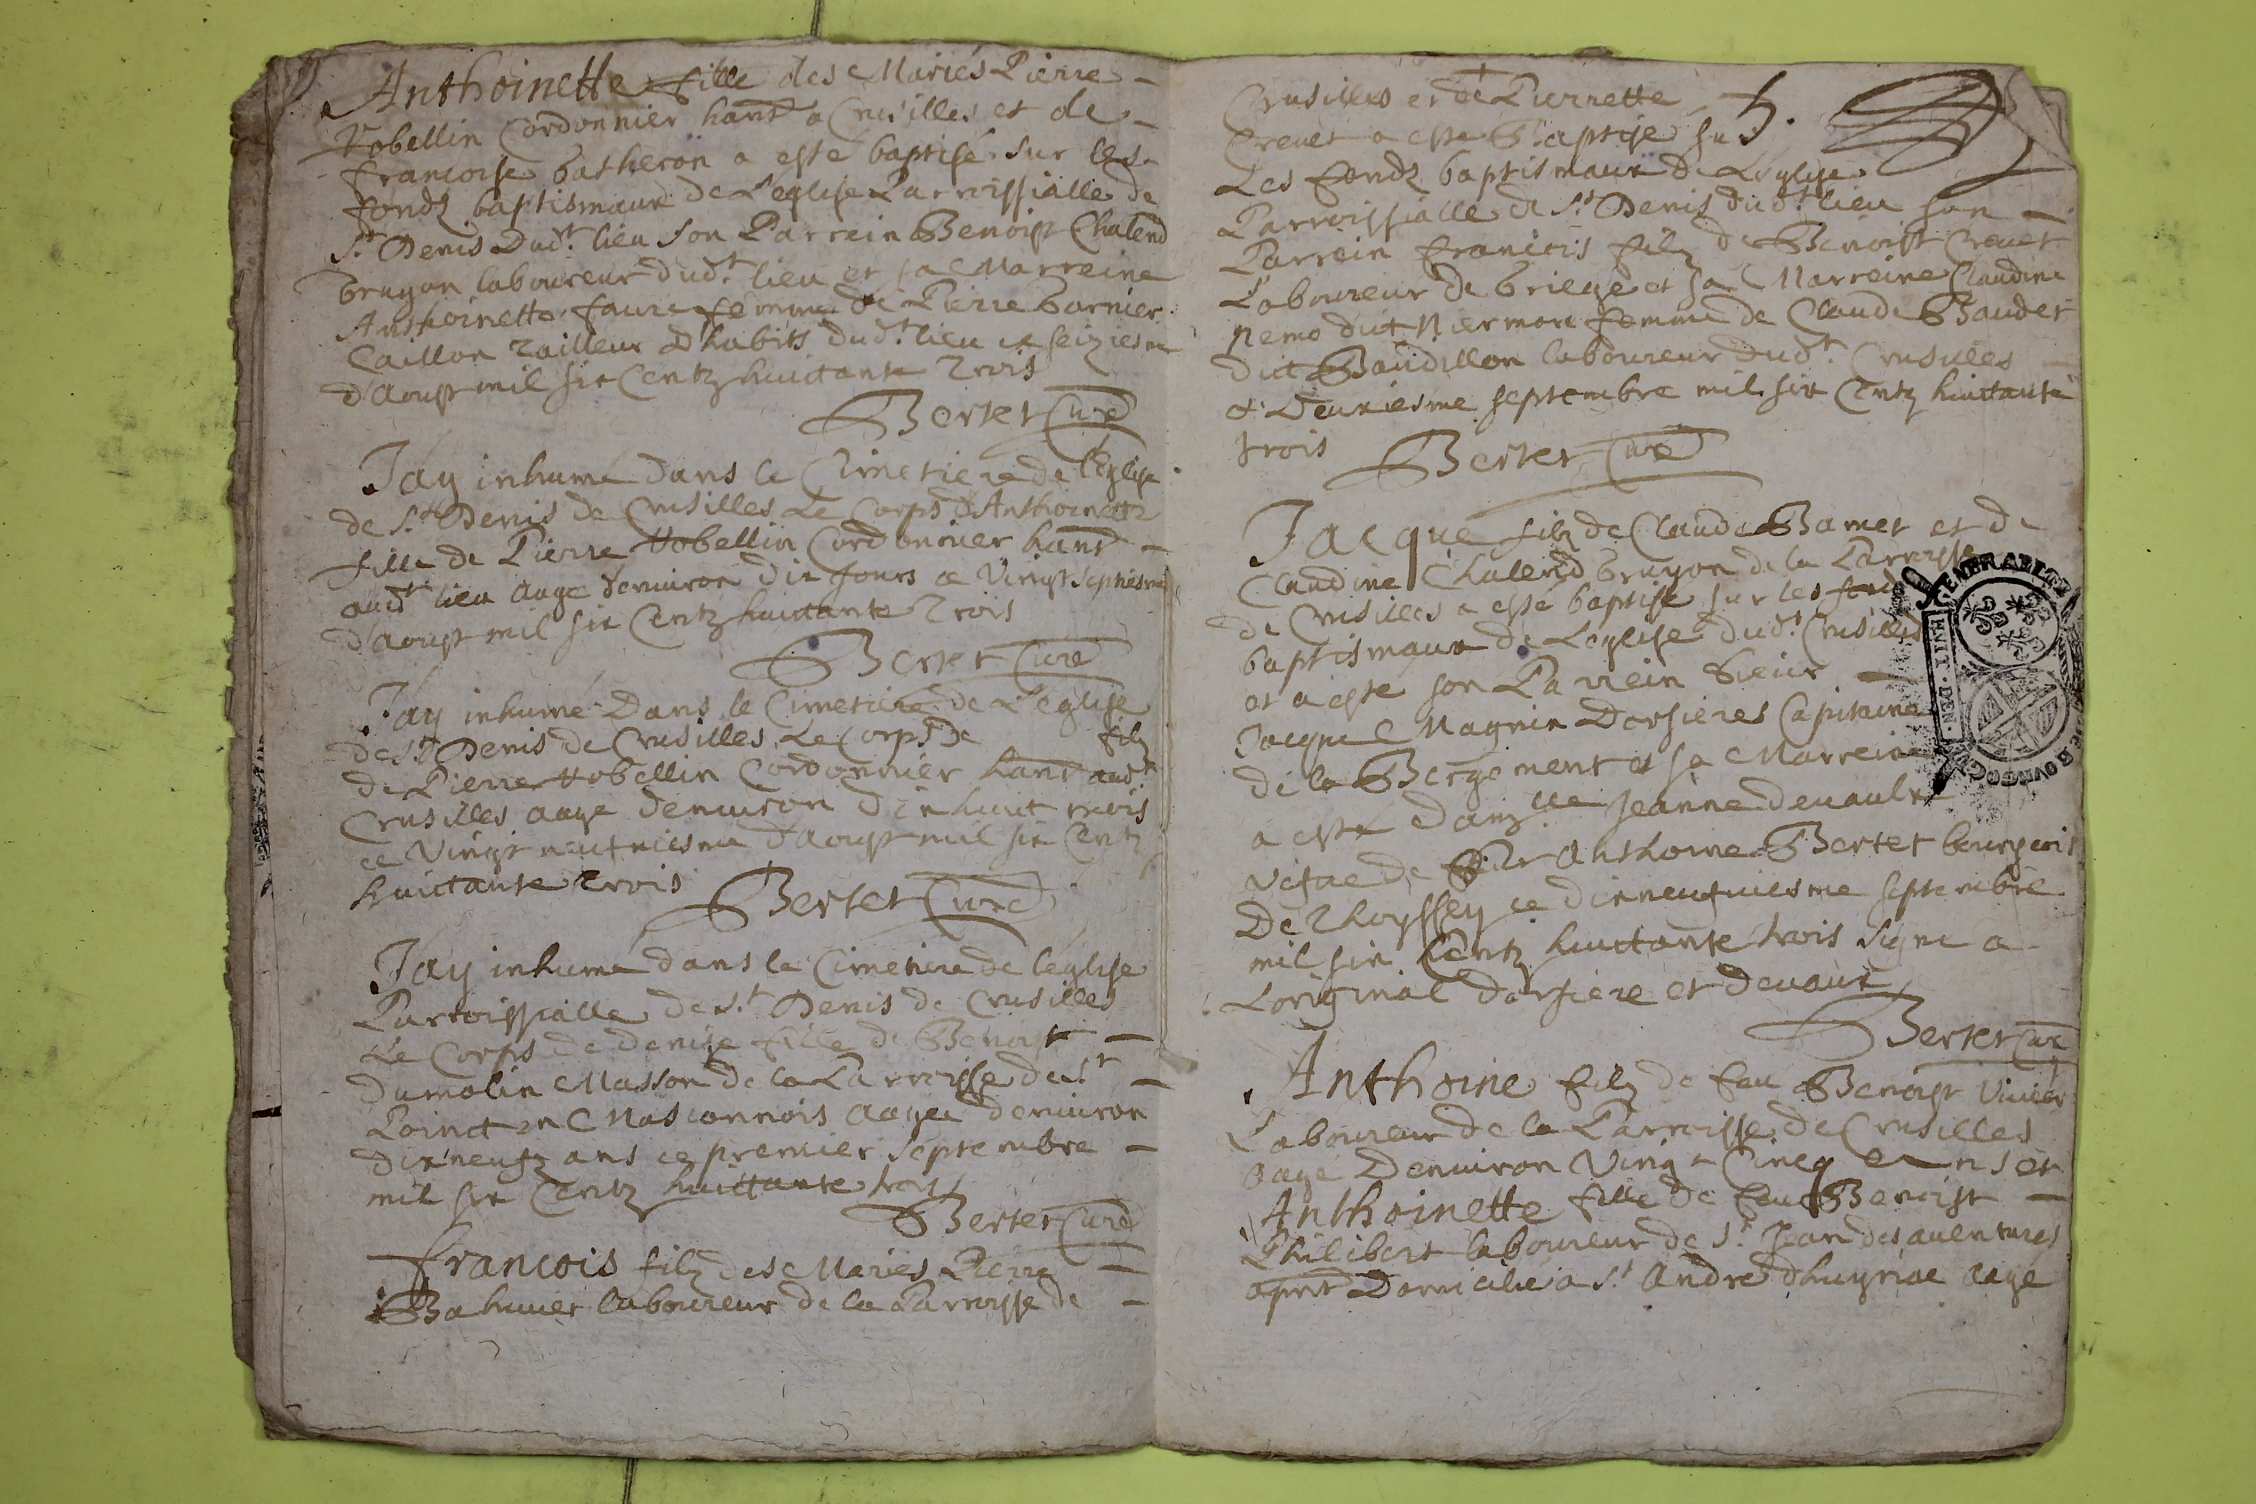 Anthoinette fille des Mariés Pierre
Hobellin Cordonnier hant a Crusilles et de
francoise batheron a esté baptisé sur les
fondz baptismaux de L'eglise Parroissialle de
St Denis dudt lieu son Parrein Benoist Chalend
bruyon laboureur dudt lieu et sa Marreine
Anthoinette faure femme de Pierre barnier
Caillon Tailleur d'habits dudt lieu ce seiziesme
d'Aoust mil six Centz huictante Trois
Bertet Curé
Jay inhumé dans le Cimetiere de l'Eglise
de St Denis de Crusilles Le Corps d'Anthoinette
fille de Pierre Hobellin Cordonnier hant
audt lieu aagé denuiron dix jours ce Vingt septiesme
d'aoust mil six Centz huictante Trois
Bertet Curé
Jay inhumé Dans le Cimetiere de L'eglise
de St Denis de Crusilles Le Corps De filz
de Pierre Hobellin Cordonnier hant audt
Crusilles aagé denuiron dixhuict mois
ce Vingt neufuiesme d'Aoust mil six Centz
huictante Trois
Bertet Curé
Jay inhumé dans le Cimetiere de l'eglise
Parroissialle de St Denis de Crusilles
Le Corps de denise fille de Benoist
dumolin Masson de la Parroisse de St
Poinct en Masconnois aagée denuiron
dixneufz ans ce premier Septembre
mil six Centz huictante trois
Bertet Curé
francois filz des Mariés Pierre
Bahuuet laboureur de la Parroisse de
Crusilles et de Pierrette
Creuet a esté Baptisé su 5.
Les fondz baptismaux de L'eglise
Parroissialle de St Denis dudt lieu son
Parrein francois filz de Benoist Creuet
Laboureur de briege et sa Marreine Claudine
nemo dict Niermon femme de Claude Baudet
dict Baudillon laboureur dudt Crusilles
ce Deuxiesme septembre mil six Centz huictante
trois
Bertet Curé
Jacque filz de Claude Bamet et de
Claudine Chalend bruyon de la Parroisse
de Crusilles a esté baptisé sur les fondz
baptismaux de L'eglise dudt Crusilles
et a esté son Parrein Sieur
Jacque Magnin Dorsieres Capitaine
de la Bergement et sa Marreine
a esté damlle Jeanne deuaulx
vefue de Sr Anthoine Bertet bourgeois
De Thoyssey ce dixneufuiesme septembre
mil six Centz huictante trois signé a
Loriginal dorsiere et deuaux
Bertet Curé
Anthoine filz de feu Benoist Viuier
Laboureur de la Parroisse de Crusilles
aagé Denuiron Vingt Cincq ans et
Anthoinette fille de feu Benoist
Philibert laboureur de St Jean des auentures
apnt Domicilié a St André d'huyriac aagé
GENERALITE
HVIT · DEN
BOVRGOGNE